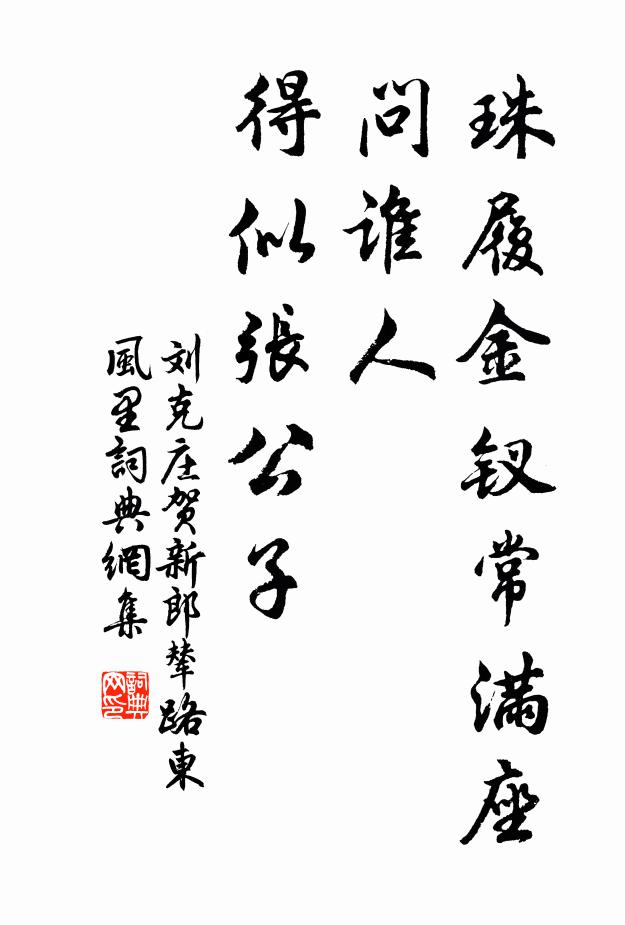 珠履金钗常满座
問誰人
得似張公子
刘克庄贺新郎輦路東
風里詞典網集
詞典
网印